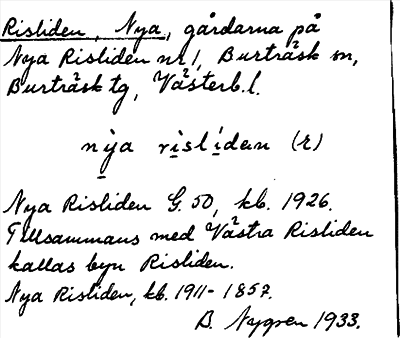 Risliden, Nya, gårdarna på
Nya Risliden nr 1, Burträsk sn,
Burträsk tg, Västerb. l.
nya rislidan (ε)
Nya Risliden G. 50, kb. 1926.
Tillsammans med Västra Risliden
kallas byn Risliden.
Nya Risliden, kb. 1911-1857.
B. Nygren 1933.